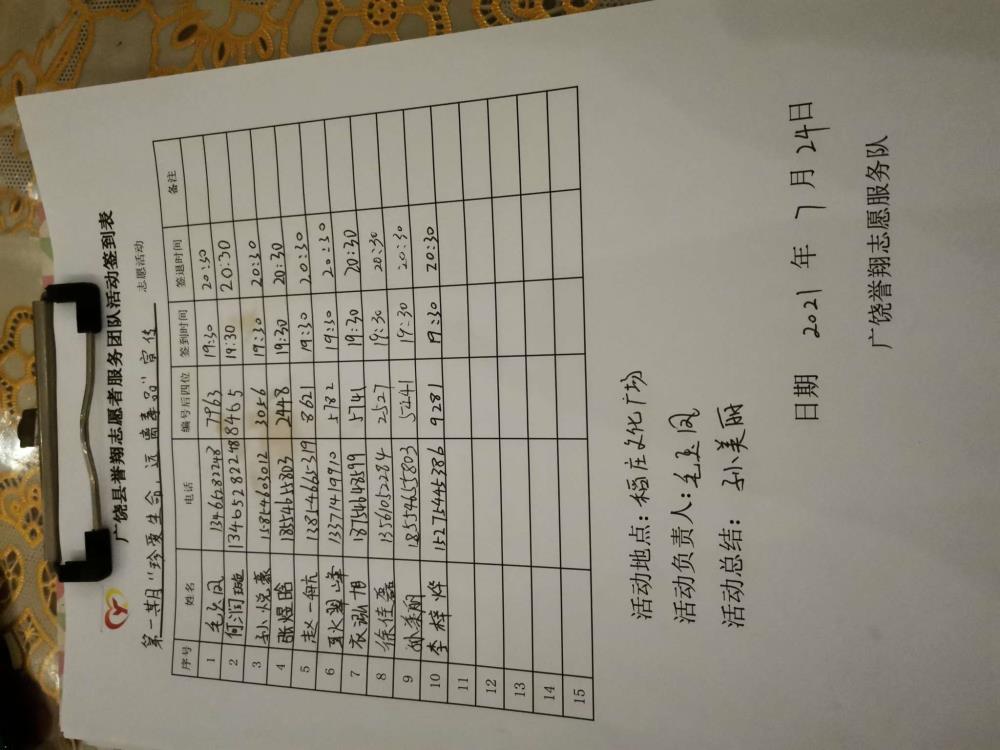 广饶县誉翔志愿者服务团队活动签到表
第一期"珍爱生命，远离毒品"宣传 志愿活动
序号 姓名 电话 编号后四位 签到时间 签退时间 备注
1 13465282248 7963 19:30 20:30
2 何润璇 13465282248 8465 19:30 20:30
3 孙悦豪 15854603012 3056 19:30 20:30
4 张煜晗 18554655803 2448 19:30 20:30
5 赵一航 8621 19:30 20:30
6 13371419910 5782 19:30 20:30
7 衣泓旭 18754648599 5741 19:30 20:30
8 徐佳磊 13561052284 2527 19:30 20:30
9 18554655803 5241 19:30 20:30
10 李梓烨 15275445386 9281 19:30 20:30
11
12
13
14
15
活动地点：稻庄文化广场
活动负责人：
活动总结： 孙美丽
日期 2021 年 7 月 24 日
广饶誉翔志愿服务队